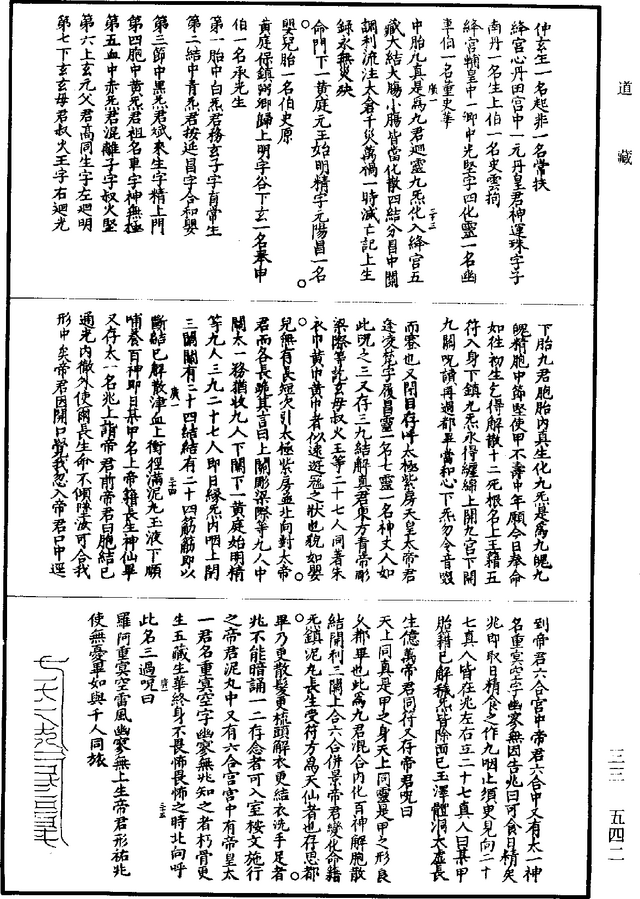 道藏
仲玄生一名起非一名常扶
絳宮心丹田宮中一元丹皇君神運珠字子
南丹一名生上伯一名史雲拘
絳宮輔皇中一卿中光堅字四化靈一名幽
車伯一名董史華
中胎九真是為九君迴靈九炁化入絳宮五
藏大結大腸小腸皆當化散四結分昌中關
調利流注太倉千災萬禍一時滅亡記上生
錄永無災殃
命門下一黃庭元王始明精字元陽昌一名
嬰兒胎一名伯史原
黃庭保鎮弼卿歸上明字谷下玄一名奉申
伯一名承光生
第一胎中白炁君務玄子字育嘗生
第二結中青炁君按延昌字合和嬰
第三節中黑炁君斌來生字精上門
第四胞中黃炁君祖名車字神無極
第五血中赤炁君混離子字叔火堅
第六上玄元父君高同生字左迴明
第七下玄玄母君叔火王字右迴光
下胎九君胞胎內真生化九炁是為九魄九
魄精胞中節堅使甲不壽中年願今日奉命
如往初生乞得解散十二死根名上玉籍五
符入身下鎮九炁永得纏綿上開九宮下開
九關呪讀再過都畢當和心下炁勿令音啜
而塞也又閉目存呼太極紫房天皇太帝君
逢凌梵字履昌靈一名七靈一名神丈人如
此呪之三又存三九結解真君東方青帝彫
梁際等訖玄母叔火王等二十七人同著朱
衣巾黃巾黃巾者似遠遊冠之狀也貌如嬰
兒無有長短次引太極紫房並北向對太帝
君而各長跪其言曰上關彫梁際等九人中
關太一務猶收九人下關下一黃庭始明精
等九人三九二十七人即日緣炁內咽上閉
三關關有二十四結結有二十四筋筋即以
斷結已解散津血上衝徑滿泥丸玉液下順
哺養百神即日某甲名上帝籍長生神仙畢
又存太一名兆上詣帝君前帝君曰胞結已
通光內徹外使爾長生命不傾墜汝可合我
形中矣帝君因開口覺我忽入帝君口中逕
到帝君六合宮中帝君六合中又有太一神
名重冥空字幽寥無因告兆曰可食日精矣
兆即取日精食之作九咽止須臾見向二十
七真人皆在兆左右立二十七真人曰某甲
胎籍已解穢炁皆除面已玉澤體洞太虛長
生億萬帝君同符又存帝君呪曰
天上同真是甲之身天上同靈是甲之形良
久都畢也此為九君混合內化百神解胞散
結開利三關上合六合併景帝君變化命籍
炁鎮泥丸長生受符方為天仙者也存思都
畢乃更散髮更梳頭解衣更結衣洗手足者
兆不能暗誦一二存念者可入室按文施行
之帝君泥丸中又有六合宮宮中有帝皇太
一君名重冥空字幽寥無兆知之者朽骨更
生五藏生華終身不畏怖畏怖之時北向呼
此名三過呪曰
羅阿重冥空雷風幽寥無上生帝君形祐兆
使無憂畢如與千人同旅
三三 五四二